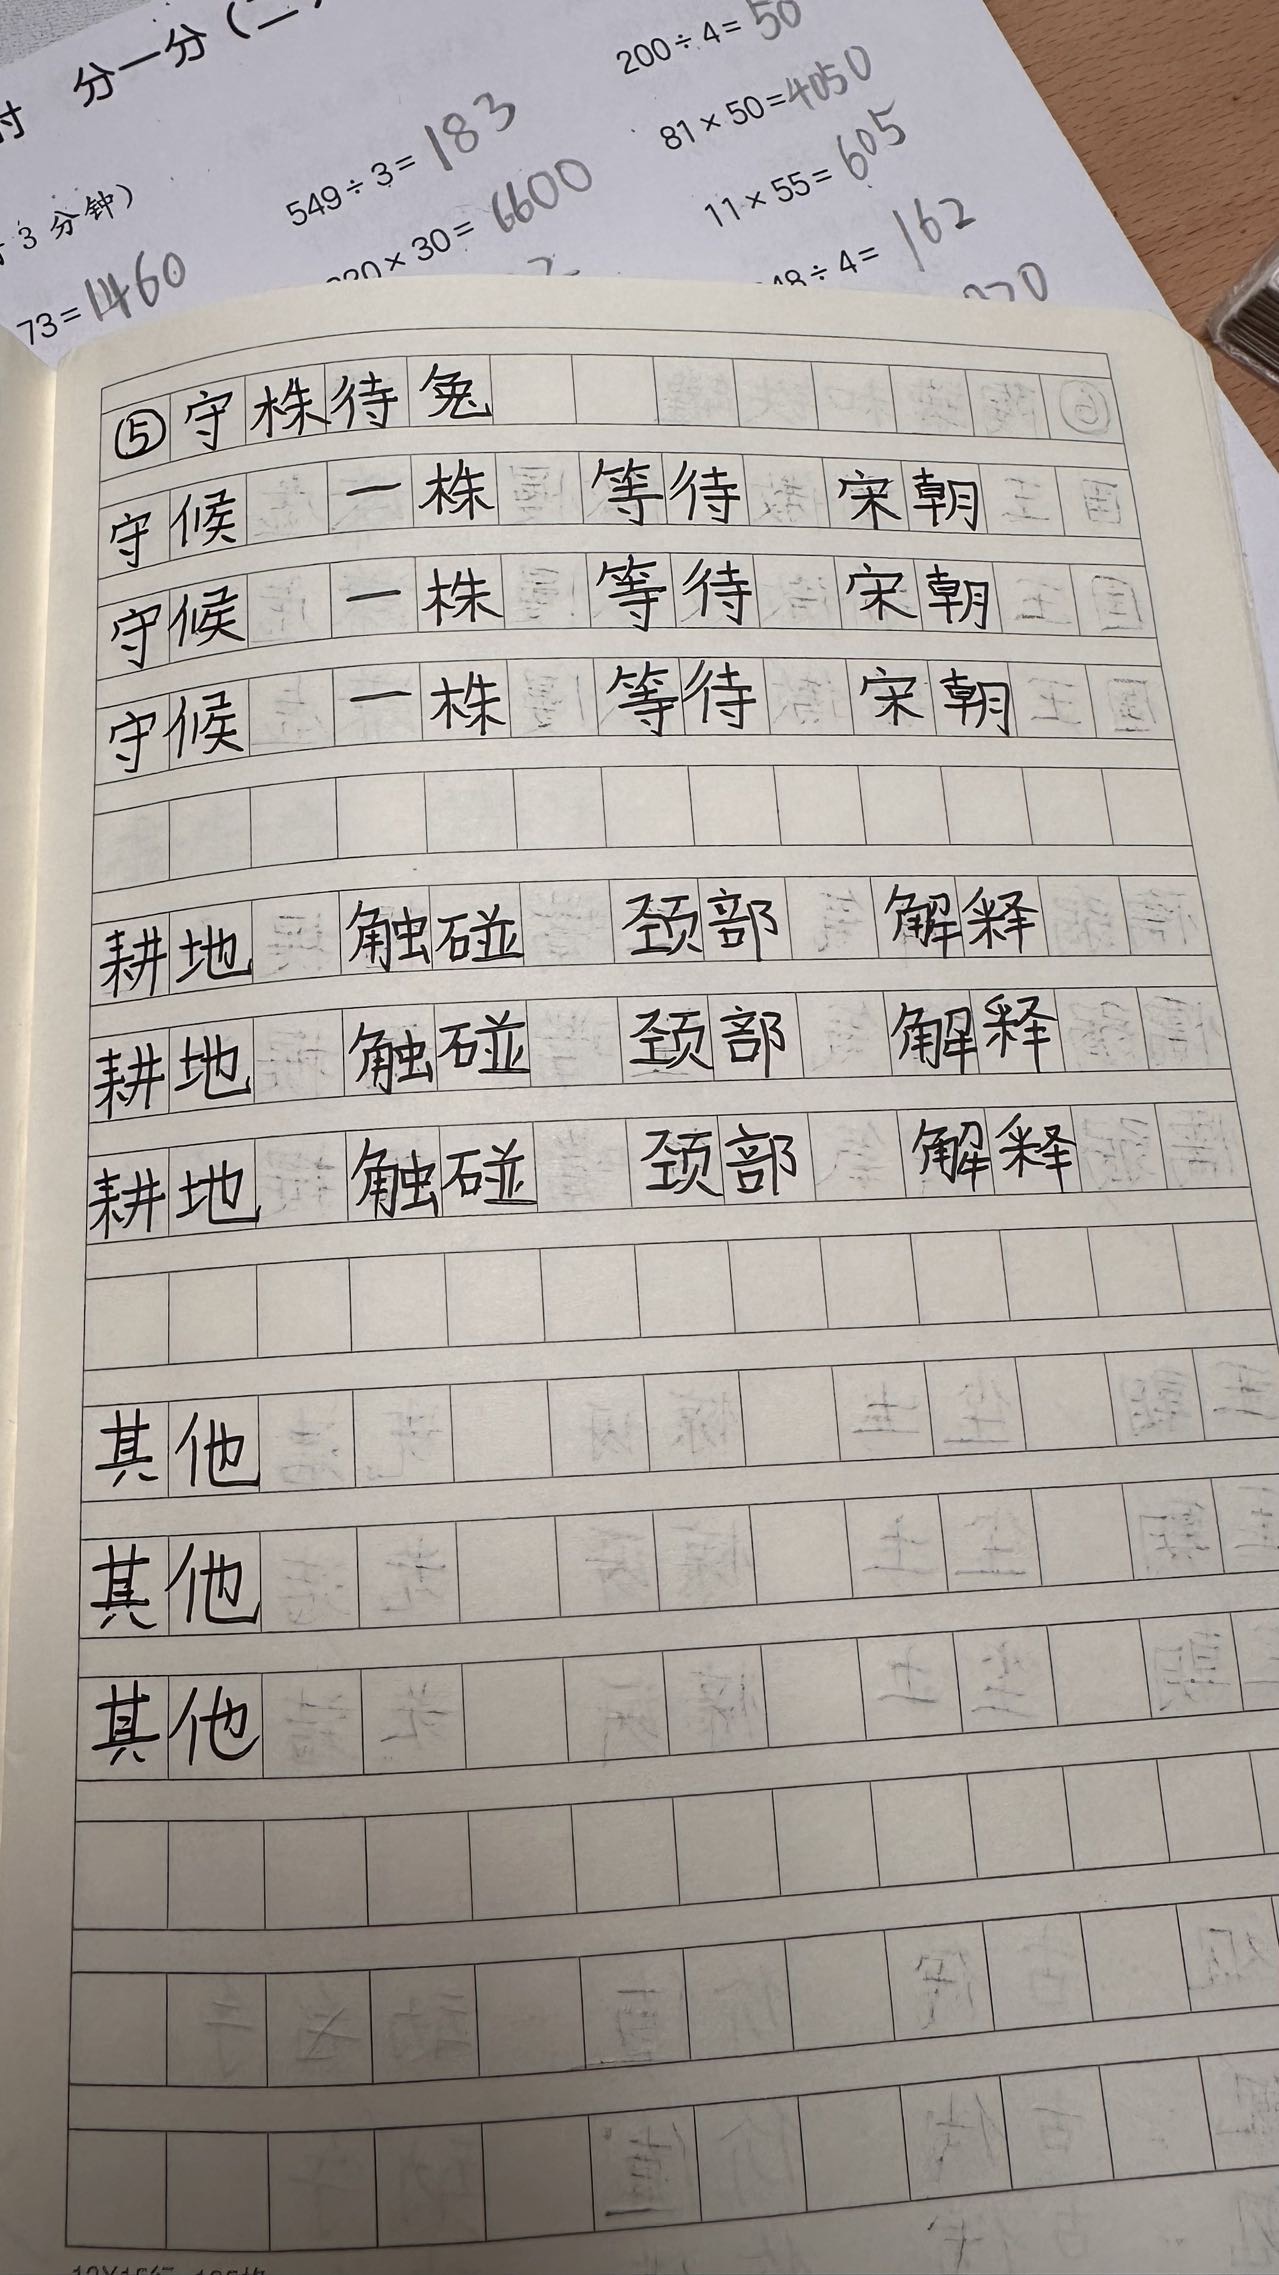 时 分一分(二)
3分钟)
200÷4=50
81×50=4050
549÷3=183
11×55=605
×30=6600
÷4=162
73=1460
⑤守株待兔
守候 一株 等待 宋朝
守候 一株 等待 宋朝
守候 一株 等待 宋朝
耕地 触碰 颈部 解释
耕地 触碰 颈部 解释
耕地 触碰 颈部 解释
其他
其他
其他